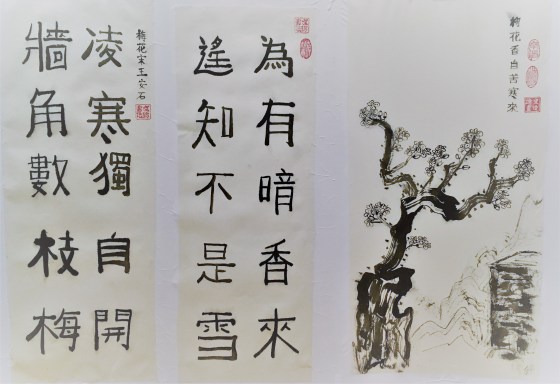 牆角數枝梅
凌寒獨自開
梅花宋王安石
遙知不是雪
為有暗香來
梅花香自苦寒來